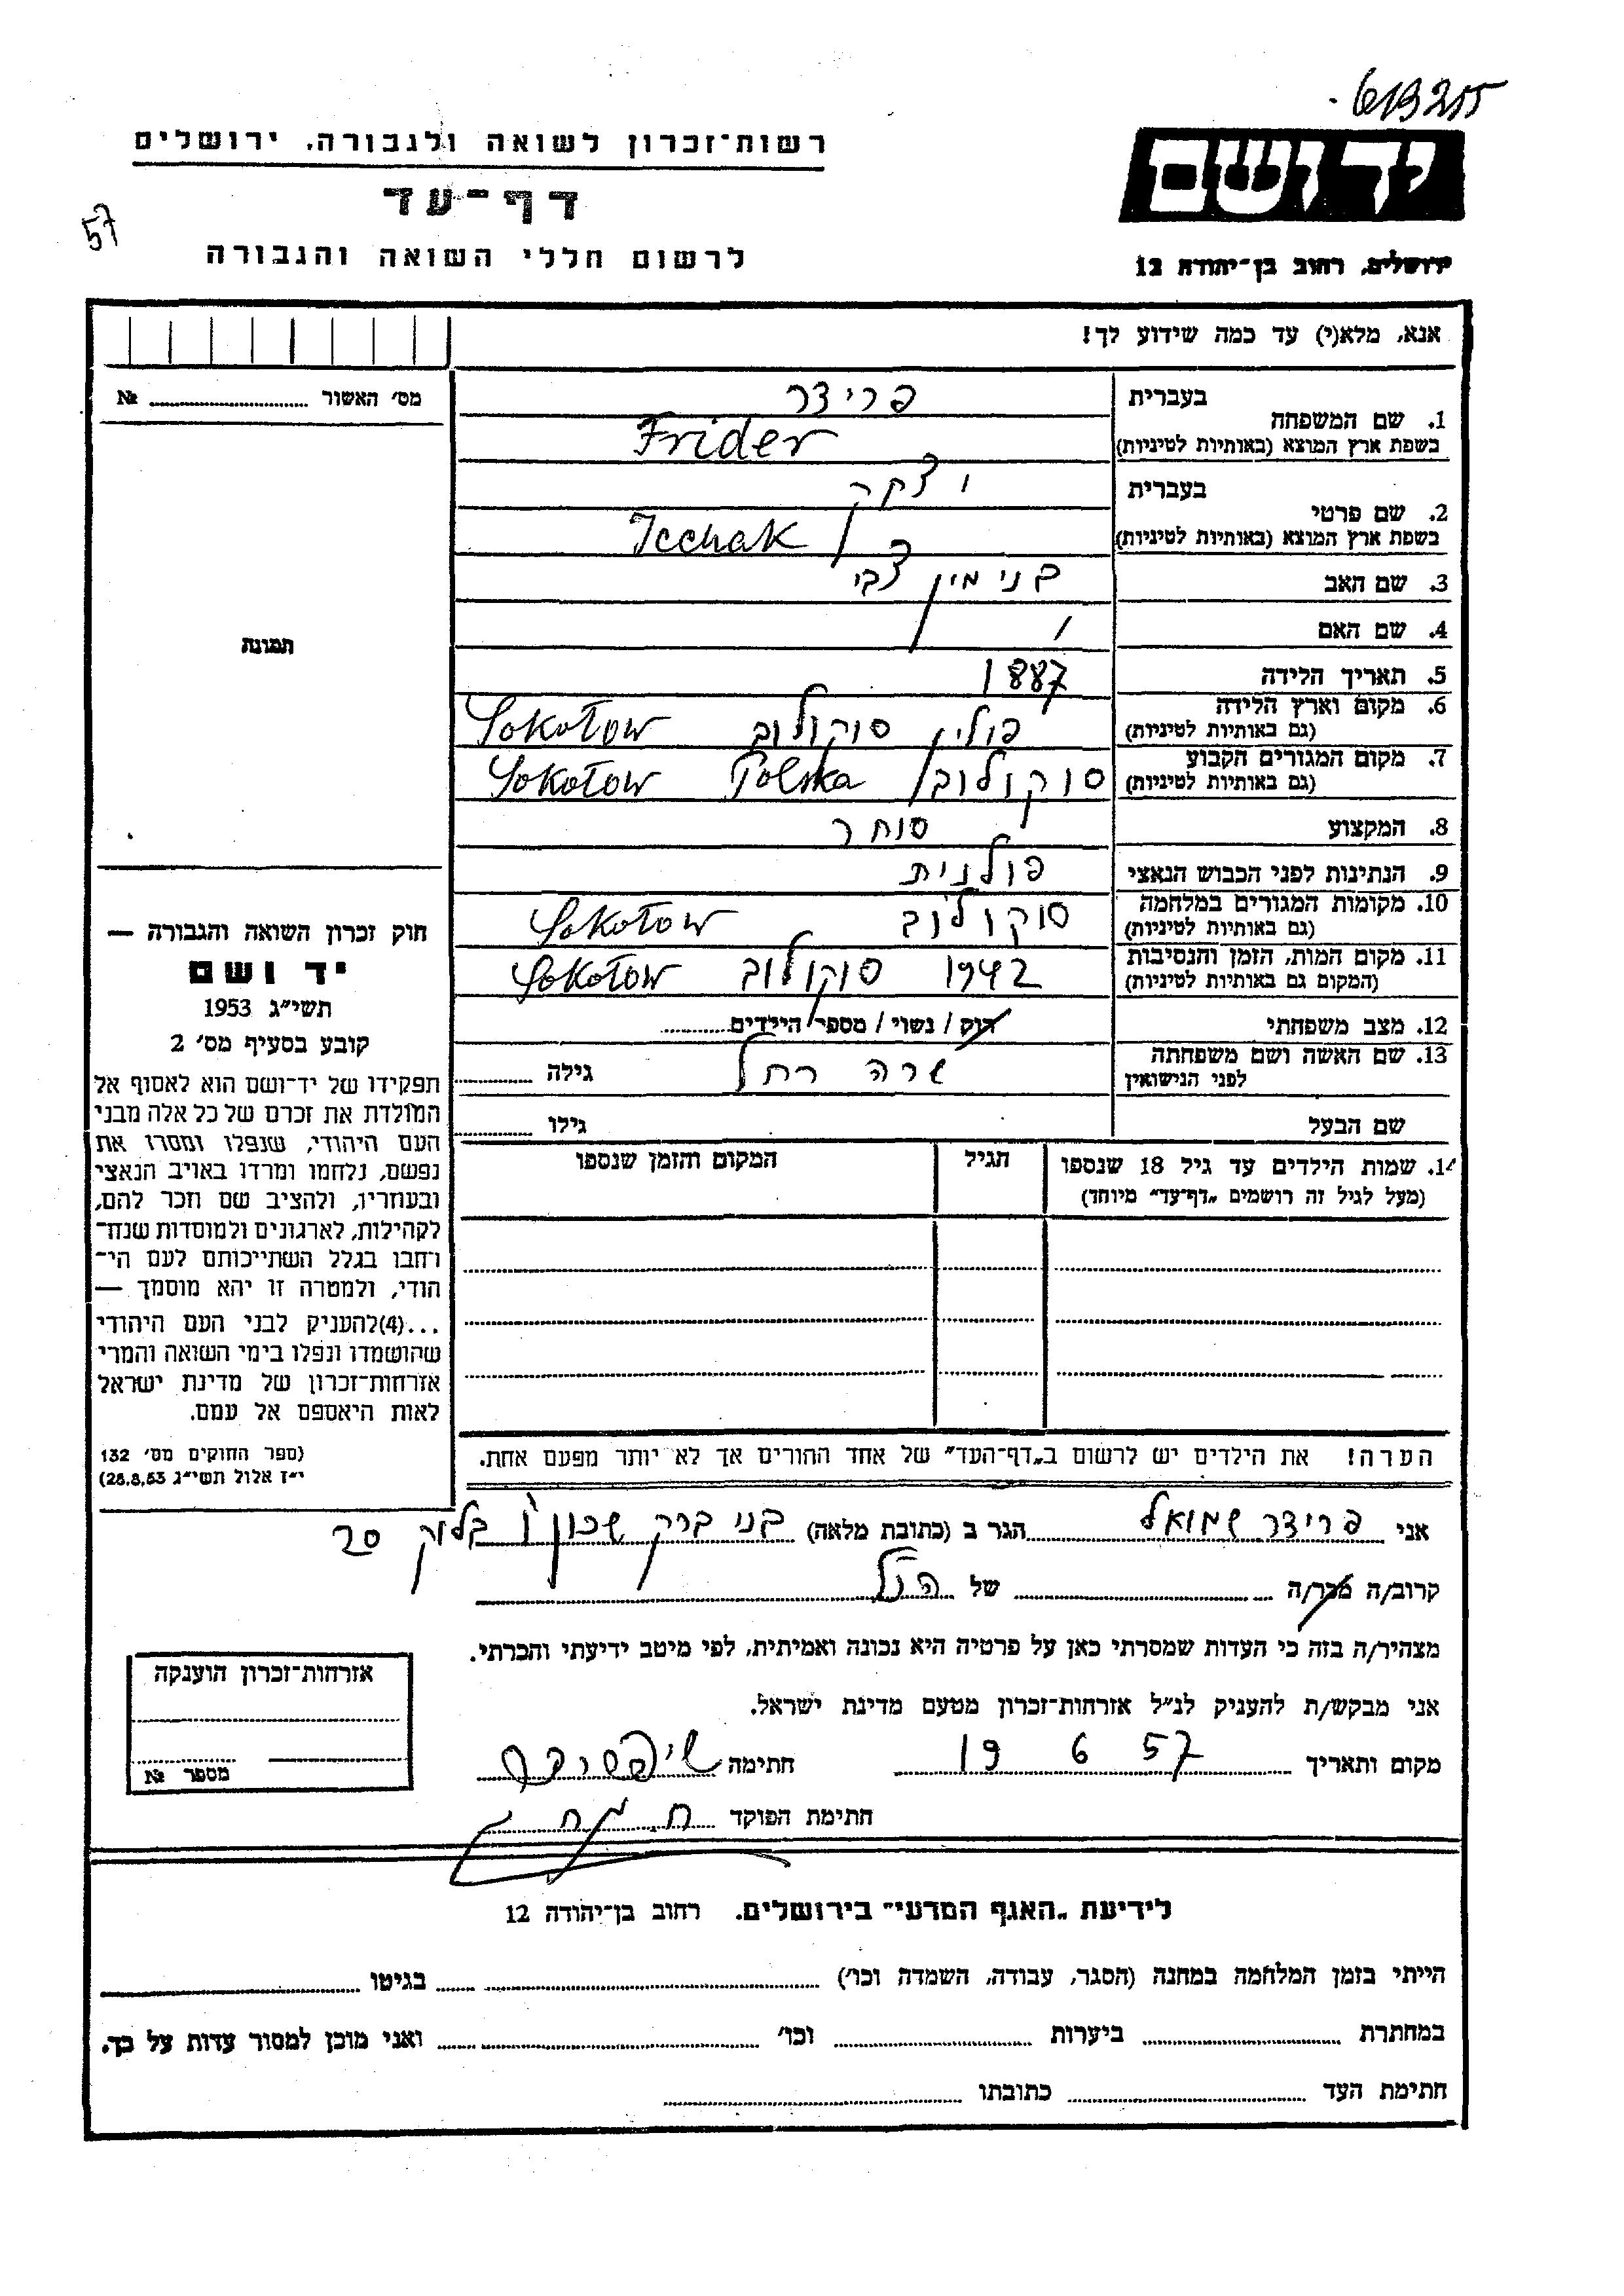 613255
רשות־זכרון לשואה ולגבורה, ירושלים
דף־עד
57
לרשום חללי השואה והגבורה
יד ושם
ירושלים, רחוב בן־יהודה 12
אנא, מלא(י) עד כמה שידוע לך!
מס׳ האשור № 
תמונה
1. שם המשפחה בעברית פרידר
בשפת ארץ המוצא (באותיות לטיניות) Frider
2. שם פרטי בעברית יצחק
בשפת ארץ המוצא (באותיות לטיניות) Icchak
3. שם האב בנימין צבי
4. שם האם /
5. תאריך הלידה 1887
6. מקום וארץ הלידה (גם באותיות לטיניות) פולין סוקולוב Sokołow
7. מקום המגורים הקבוע (גם באותיות לטיניות) סוקולוב Polska Sokołow
8. המקצוע סוחר
9. הנתינות לפני הכבוש הנאצי פולנית
10. מקומות המגורים במלחמה (גם באותיות לטיניות) סוקולוב Sokołow
11. מקום המות, הזמן והנסיבות (המקום גם באותיות לטיניות) 1942 סוקולוב Sokołow
12. מצב משפחתי רוק / נשוי / מספר הילדים
13. שם האשה ושם משפחתה לפני הנישואין שרה רחל גילה
שם הבעל גילו
14. שמות הילדים עד גיל 18 שנספו הגיל המקום והזמן שנספו
(מעל לגיל זה רושמים „דף־עד״ מיוחד)
חוק זכרון השואה והגבורה —
יד ושם
תשי״ג 1953
קובע בסעיף מס׳ 2
תפקידו של יד־ושם הוא לאסוף אל
המולדת את זכרם של כל אלה מבני
העם היהודי, שנפלו ומסרו את
נפשם, נלחמו ומרדו באויב הנאצי
ובעוזריו, ולהציב שם וזכר להם,
לקהילות, לארגונים ולמוסדות שנח־
רבו בגלל השתייכותם לעם הי־
הודי, ולמטרה זו יהא מוסמך —
...(4) להעניק לבני העם היהודי
שהושמדו ונפלו בימי השואה והמרי
אזרחות־זכרון של מדינת ישראל
לאות היאספם אל עמם.
(ספר החוקים מס׳ 132
י״ז אלול תשי״ג 28.8.53)
הערה! את הילדים יש לרשום ב„דף־העד״ של אחד ההורים אך לא יותר מפעם אחת.
אני פרידר שמואל הגר ב (כתובת מלאה) בני ברק שכון ו׳ בלוק 20
קרוב/ה מכר/ה של הנ״ל
מצהיר/ה בזה כי העדות שמסרתי כאן על פרטיה היא נכונה ואמיתית, לפי מיטב ידיעתי והכרתי.
אני מבקש/ת להעניק לנ״ל אזרחות־זכרון מטעם מדינת ישראל.
מקום ותאריך 19 6 57 חתימה
חתימת הפוקד
אזרחות־זכרון הוענקה
מספר №
לידיעת „האגף המדעי״ בירושלים, רחוב בן־יהודה 12
הייתי בזמן המלחמה במחנה (הסגר, עבודה, השמדה וכו׳) בגיטו
במחתרת ביערות וכו׳ ואני מוכן למסור עדות על כך.
חתימת העד כתובתו